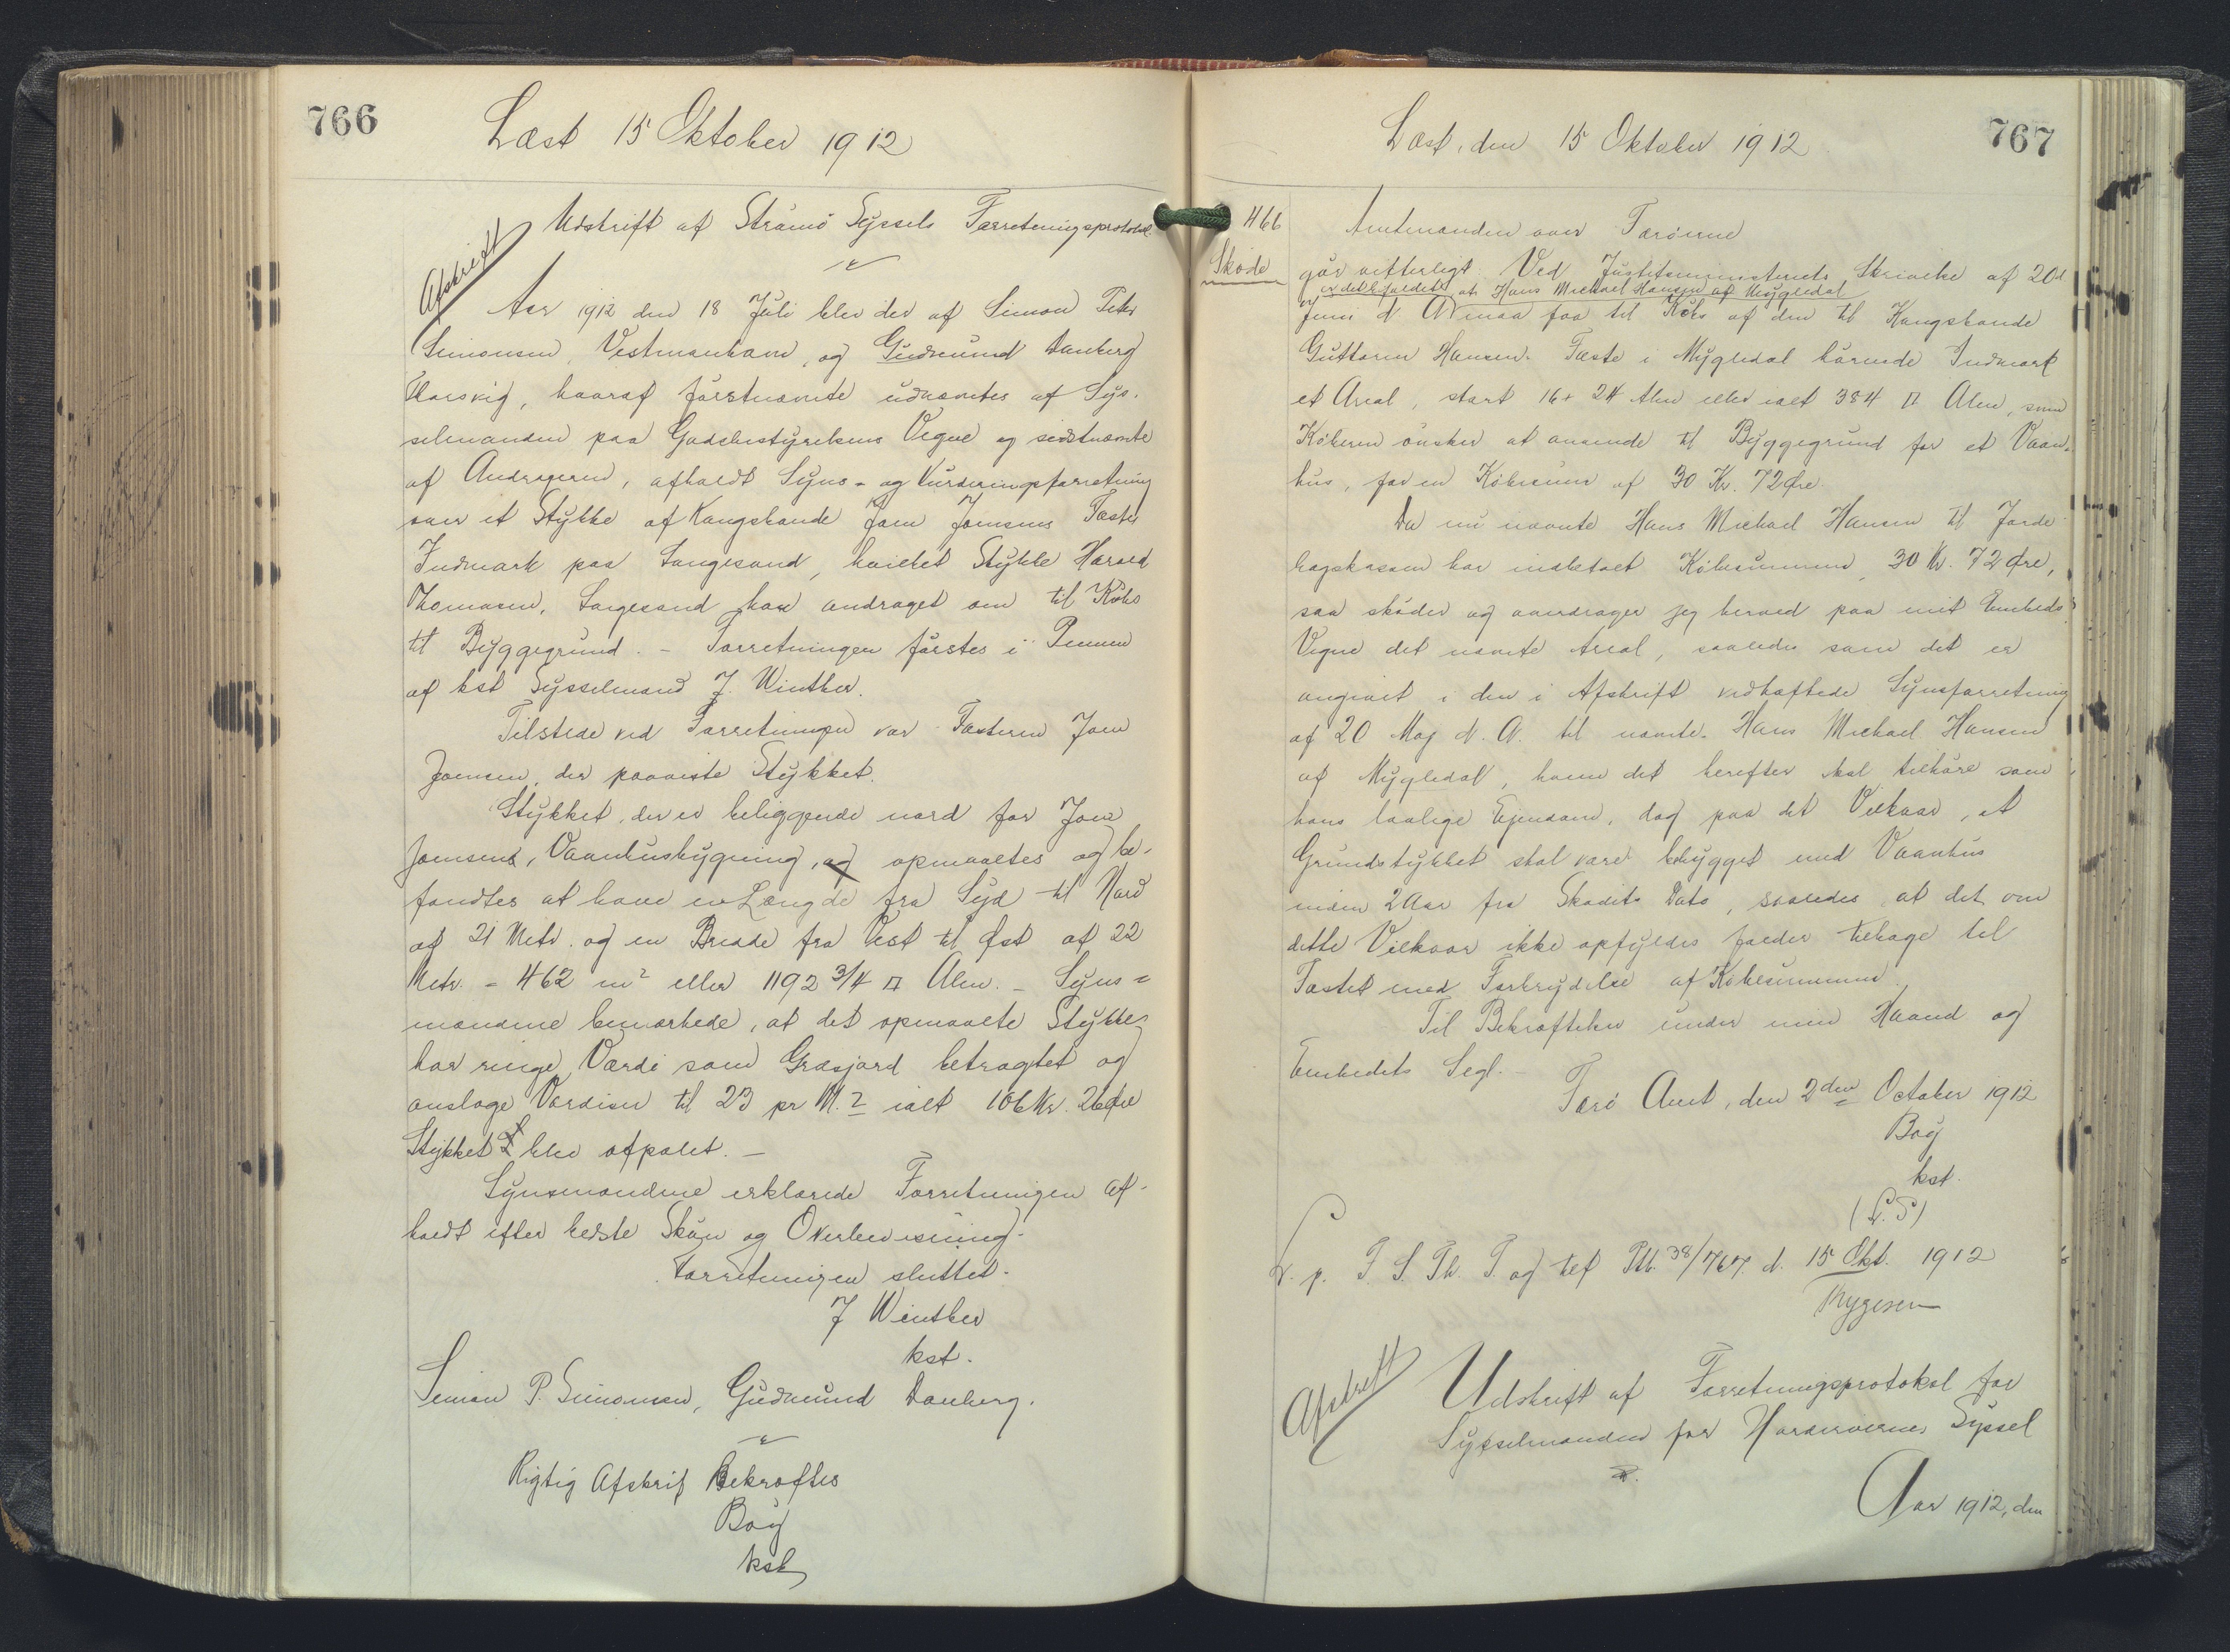 766
Læst 15 Oktober 1912
Afskrift
Udskrift af Strømø Syssels Forretningsprotokol.
Aar 1912 den 18 Juli blev der af Simon Peter
Simonsen, Vestmanhavn, og Gudmund Danberg
Thorsvig, hvoraf førstnævnte udnævntes af Sys-
selmanden paa Godsbestyrelsens Vegne og sidstnævnte
af Andrageren, afholdt Syns- og Vurderingsforretning
over et Stykke af Kongsbonde Joen Joensens Fæste
Indmark paa Langesand, hvilket Stykke Harald
Thomasen, Langesand har andraget om til Købs
til Byggegrund. - Forretningen førstes i Pennen
af kst Sysselmand J. Winther.
Tilstede ved Forretningen var Fæsteren Joen
Joensen, der paaviste Stykket.
Stykket, der er beliggende nord for Joen
Joensens, Vaanhusbygning, og opmaaltes og be-
fandtes at have en Længde fra Syd til Nord
af 21 Metr. og en Bredde fra Vest til Øst af 22
Metr. = 462 m² eller 1192 3/4 □ Alen. - Syns=
mændene bemærkede, at det opmaalte Stykke
har ringe Værdi som Græsjord betragtet og
anslage Værdien til 23 pr M.² ialt 106 Kr. 26 Øre
Stykket blev afpælet. -
Synsmændene erklærede Forretningen af-
holdt efter bedste Skøn og Overbevisning.
Forretningen sluttet.
J Winther
kst.
Simon P. Simonsen, Gudmund Danberg.
Rigtig Afskrif Bekræftes
Bøy
kst
767
Læst, den 15 Oktober 1912
466
Skøde
Amtmanden over Færøerne
gør vitterligt: Ved Justitsministeriets Skrivelse af 20d
er det bifaldet at Hans Michael Hansen af Mygledal
Juni d A maa faa til Købs af den til Kongsbonde
Guttorm Hansens Fæste i Mygledal hørende Indmark
et Areal, stort 16 x 24 Alen eller ialt 384 □ Alen, som
Køberen ønsker at anvende til Byggegrund for et Vaan-
hus, for en Købesum af 30 Kr. 72 Øre.
Da nu nævnte Hans Michael Hansen til Jorde-
bogskassen har indbetalt Købesummen, 30 Kr. 72 Øre,
saa skøder og overdrager jeg herved paa mit Embeds
Vegne det nævnte Areal, saaledes som det er
angivet i den i Afskrift vedhæftede Synsforretning
af 20 Maj d. A. til nævnte Hans Michael Hansen
af Mygledal, hvem det herefter skal tilhøre som
hans lovlige Ejendom, dog paa det Vilkaar, at
Grundstykket skal være bebygget med Vaanhus
inden 2 Aar fra Skødets Dato, saaledes at det om
dette Vilkaar ikke opfyldes falder tilbage til
Fæstet med Forbrydelse af Købesummen.
Til Bekræftelse under min Haand og
Embedets Segl. -
Færø Amt, den 2den October 1912
Bøy
kst.
(L. S)
L. p. F. S. Th. T. og tilf Ptb. 38/767. d. 15 Okt. 1912
Thygesen
Afskrift
Udskrift af Forretningsprotokol for
Sysselmanden for Norderøernes Syssel
Aar 1912, den